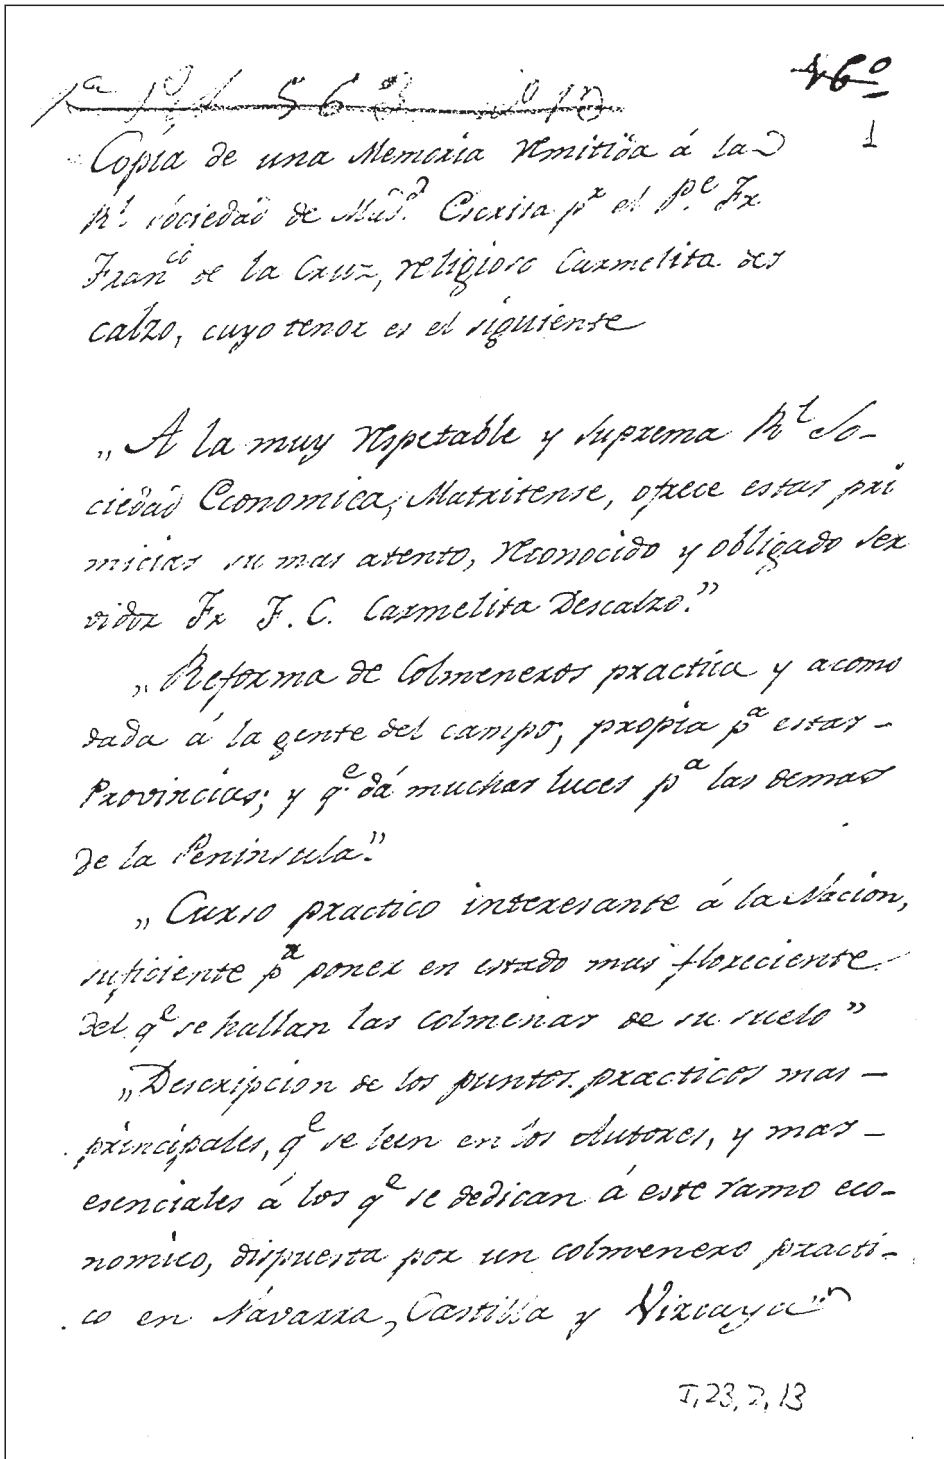 46º
1
Copia de una Memoria remitida á la
Rl. Sociedad de Madd. Escrita pr el P.e Fr.
Franco de la Cruz, religioso Carmelita des
calzo, cuyo tenor es el siguiente
„A la muy respetable y suprema Rl So-
ciedad Economica, Matritense, ofrece estas pri
micias su mas atento, reconocido y obligado ser
vidor Fr F. C. Carmelita Descalzo.”
„Reforma de Colmeneros practica y acomo
dada á la gente del campo, propia pa estas -
Provincias; y qe dá muchas luces pa las demas
de la Peninsula.”
„Curso practico interesante á la Nacion,
suficiente pa poner en estado mas floreciente
del qe se hallan las colmenas de su suelo”
„Descripcion de los puntos practicos mas -
principales, qe se leen en los Autores, y mas -
esenciales á los qe se dedican á este ramo eco-
nomico, dispuesta por un colmenero practi-
co en Navarra, Castilla y Vizcaya”
I, 23, 2, 13